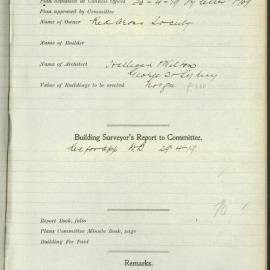 Plan deposited at Council Office 23-4-19 by letter 1969
Plan approved by Committee
Name of Owner Red Cross Society
Name of Builder
Name of Architect Halligan & Wilton
George St Sydney
Value of Buildings to be erected
Building Surveyor's Report to Committee.
Rec for app 28-4-19
Report Book, folio
Plans Committee Minute Book, page
Building Fee Paid
Remarks.